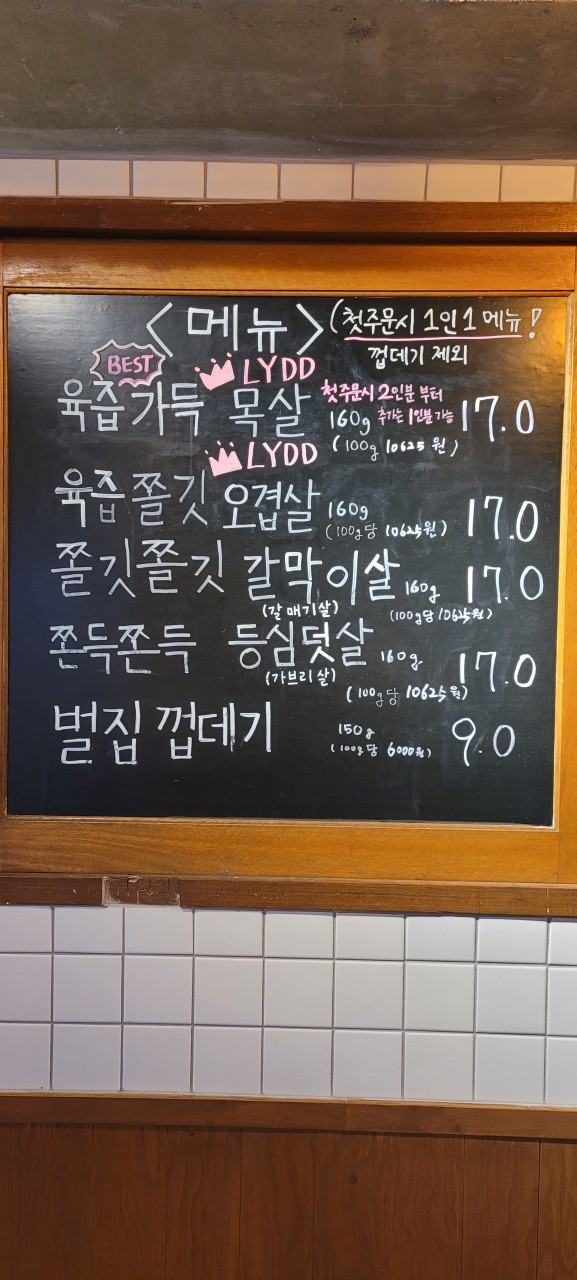 <메뉴> (첫주문시 1인 1메뉴!
껍데기 제외
BEST
LYDD
육즙가득 목살 160g 17.0
첫주문시 2인분 부터
추가는 1인분 가능
(100g 10625원)
LYDD
육즙쫄깃 오겹살 160g 17.0
(100g당 10625원)
쫄깃쫄깃 갈막이살 160g 17.0
(갈매기살) (100g당 10625원)
쫀득쫀득 등심덧살 160g 17.0
(가브리살) (100g당 10625원)
벌집 껍데기 150g 9.0
(100g당 6000원)